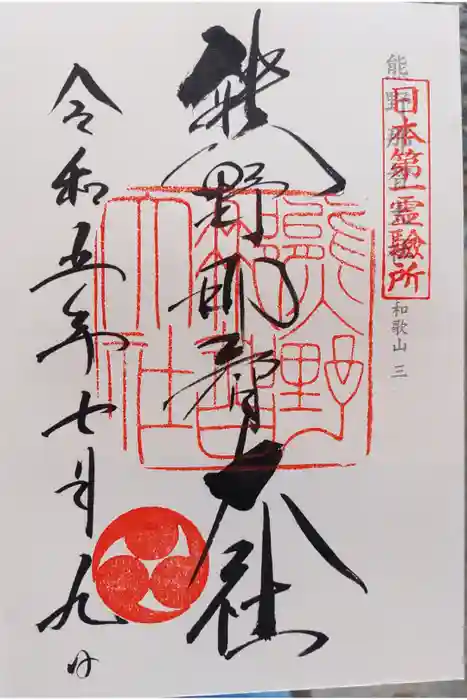 日本第一霊験所
熊野那智
和歌山 三
熊野那智大社
熊野那智大社
令和五年七月九日